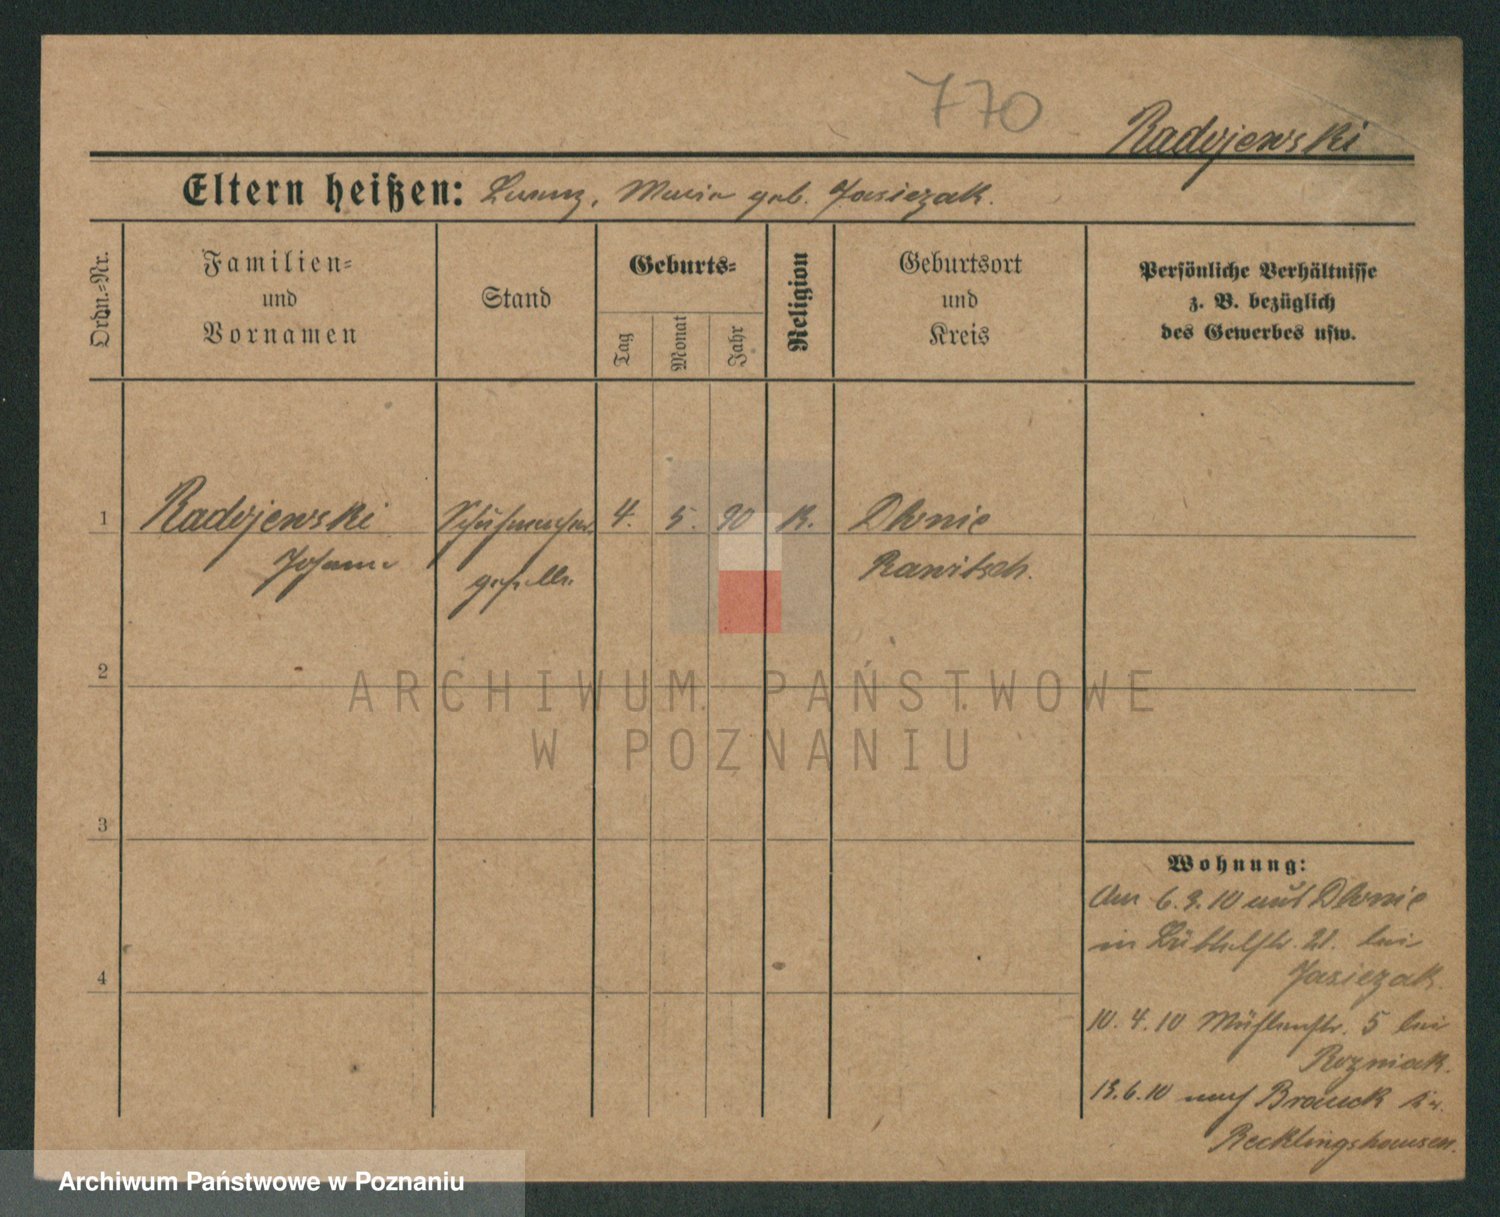 770
Radojewski
Eltern heißen: Lorenz, Maria geb. Jasiczak.
Ordn.-Nr.
Familien-
und
Vornamen
Stand
Geburts-
Tag
Monat
Jahr
Religion
Geburtsort
und
Kreis
Persönliche Verhältnisse
z. B. bezüglich
des Gewerbes usw.
1 Radojewski Schuhmacher 4. 5. 90 K. Dlonie
Johann geselle Rawitsch.
2
3
4
Wohnung:
Am 6.3.10 aus Dlonie
in 21. bei
Jasiczak.
10.4.10 Mühlenstr. 5 bei
Rozniak.
13.6.10 nach Brauck Kr.
Recklinghausen.
ARCHIWUM PAŃSTWOWE
W POZNANIU
Archiwum Państwowe w Poznaniu